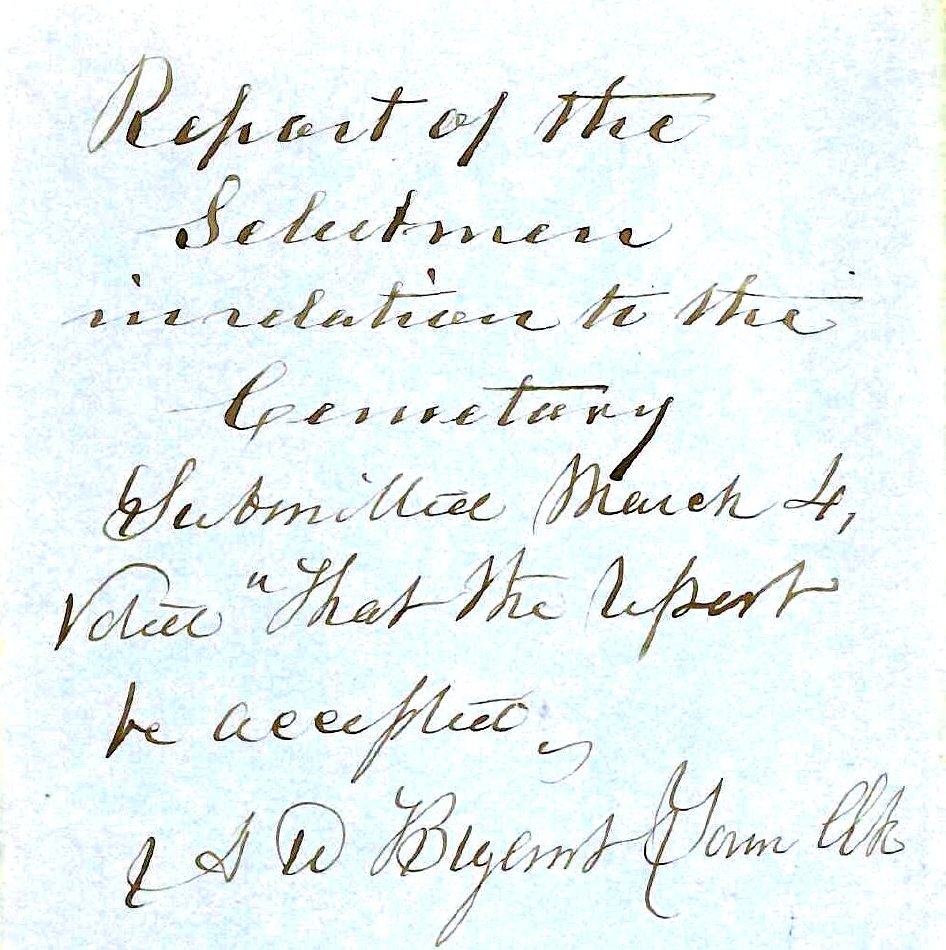 Report of the
Selectmen
in relation to the
Cemetary
Submitted March 4,
Voted "That the report
be accepted,
S D Bryant Town Clk